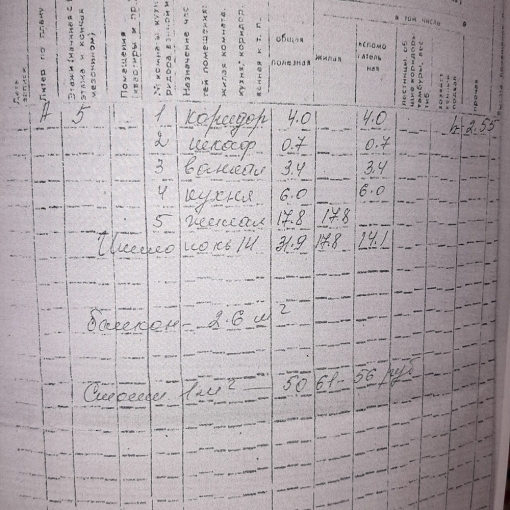 в том числе
Дата записи
Литер по плану
Этажи (начиная с
этажа и кончая
мезонином)
Помещения
Назначение час
тей помещения:
жилая комната,
кухня, коридор,
общая
полезная
жилая
вспомо
гатель
ная
прочая
А 5 1 коридор 4.0 4.0 h-2.55
2 шкаф 0.7 0.7
3 ванная 3.4 3.4
4 кухня 6.0 6.0
5 жилая 17.8 17.8
Итого по кв 14 31.9 17.8 14.1
балкон - 2.6 м²
Стоим. 1м² 50 61-56 руб